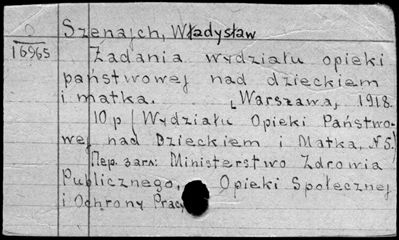 Szenajch, Władysław
16965
Zadania wydziału opieki
państwowej nad dzieckiem
i matka. [Warszawa, 1918.
10 p / Wydziału Opieki Państwo-
wej nad Dzieckiem i Matka, N5!
Пер. загл: Ministerstwo Zdrowia
Publicznego, Opieki Społecznej
i Ochrony Prac